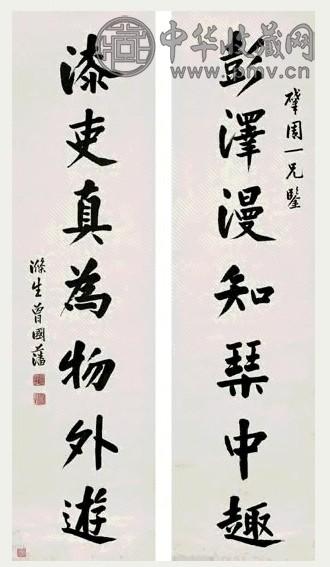 中华收藏网
www.pmv.cn
肇周一兄鑒
彭澤漫知琹中趣
漆吏真為物外遊
滌生曾國藩